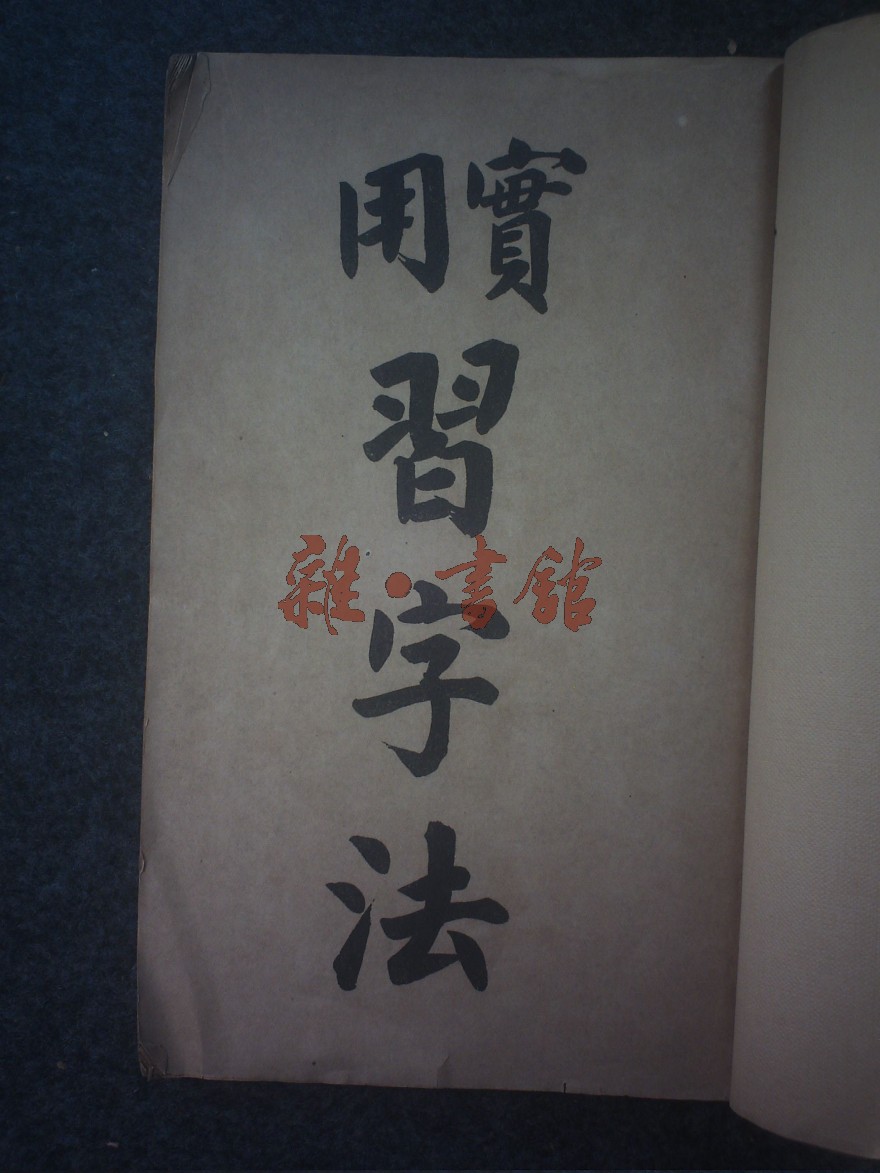 實用
習字法
雜·書館